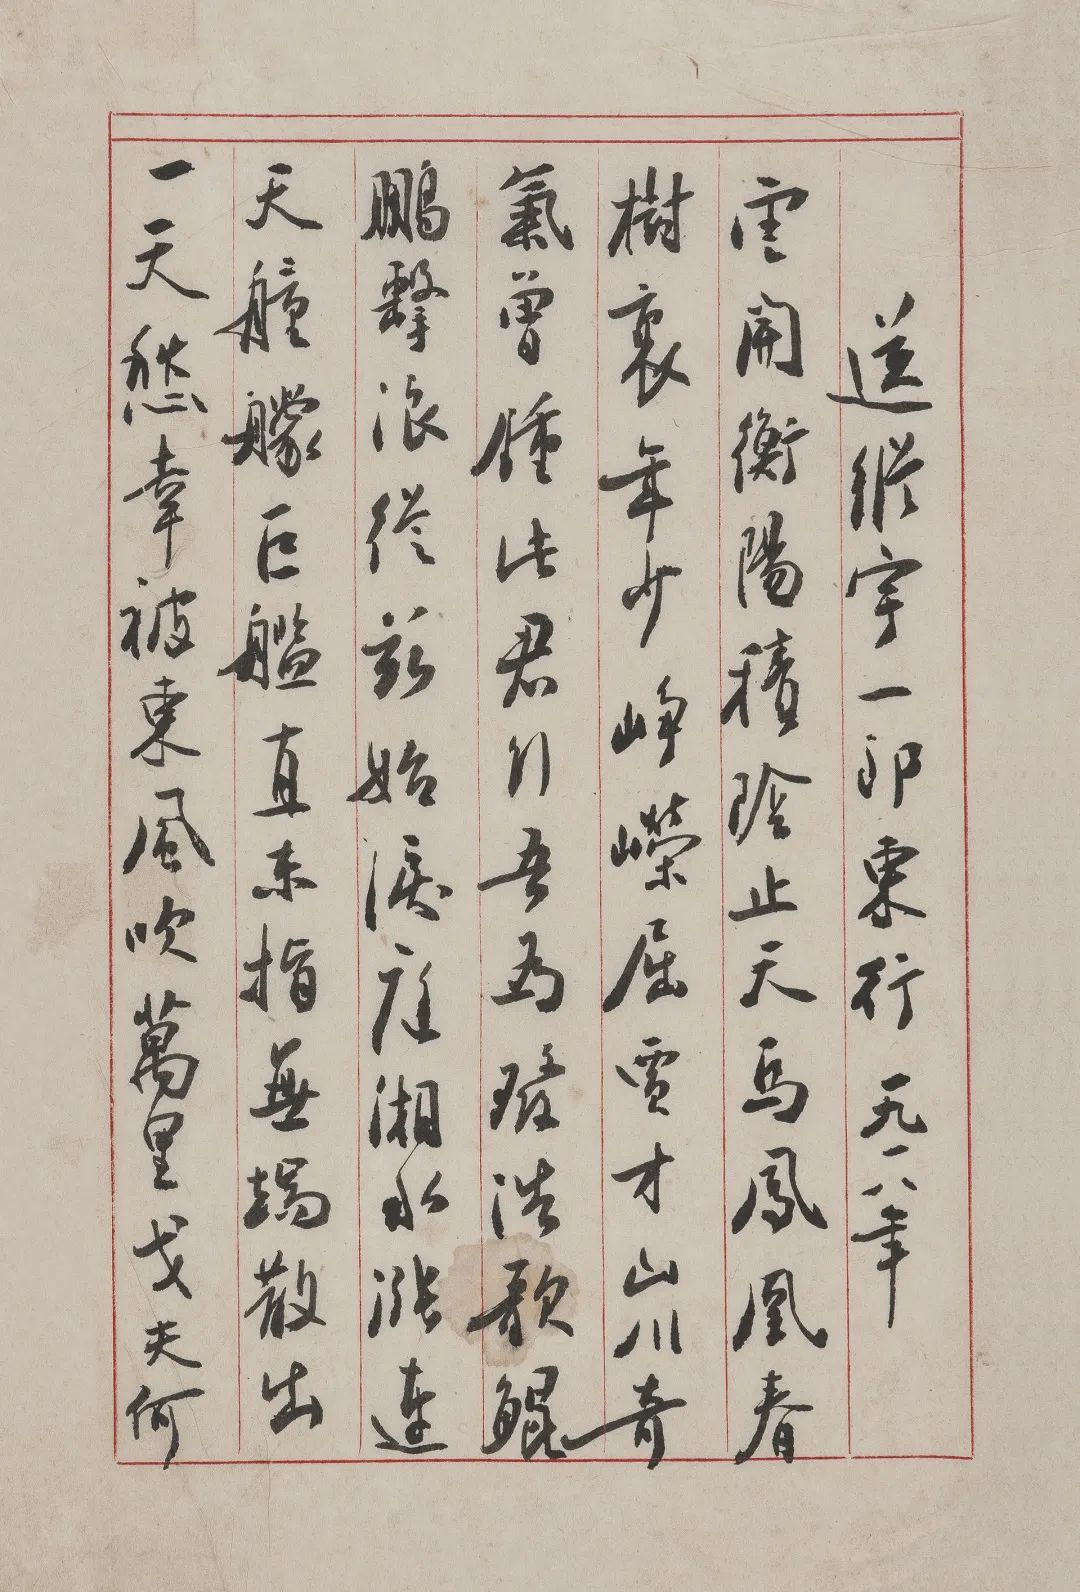 送縱宇一郎東行 一九一八年
雲開衡陽積陰止天馬鳳凰春
樹裏年少崢嶸屈賈才山川奇
氣曾鍾此君行吾為發浩歌鯤
鵬擊浪從茲始洞庭湘水漲連
天艟艨巨艦直東指無端散出
一天愁幸被東風吹萬里丈夫何